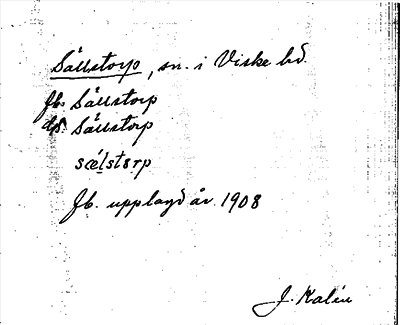 Sällstorp, sn. i Viske hd.
Jb. Sällstorp
dp. Sällstorp
sǽlstɔrp
Jb. upplagd år 1908
J. Kalén